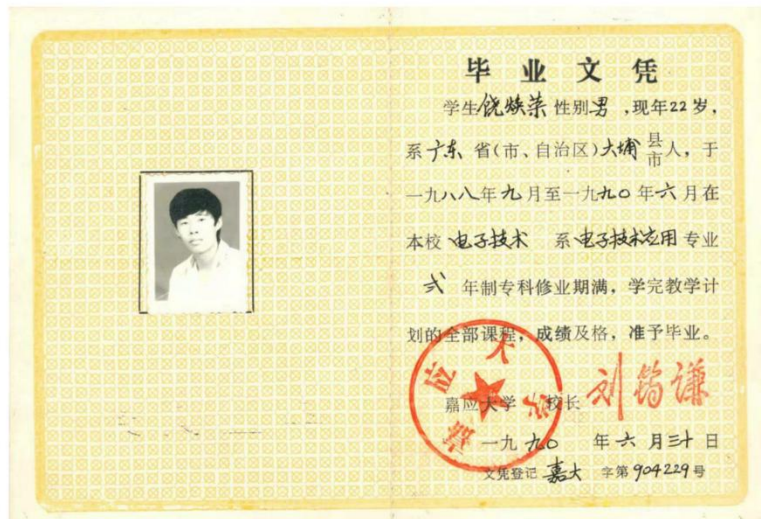 毕业文凭
学生 饶焕荣 性别男，现年22岁，
系广东省(市、自治区)大埔县市人，于
一九八八年九月至一九九〇年六月在
本校 电子技术 系 电子技术应用 专业
弍 年制专科修业期满，学完教学计
划的全部课程，成绩及格，准予毕业。
嘉应大学
嘉应大学 校长 刘锦谦
一九九〇年六月三十日
文凭登记 嘉大 字第904229号